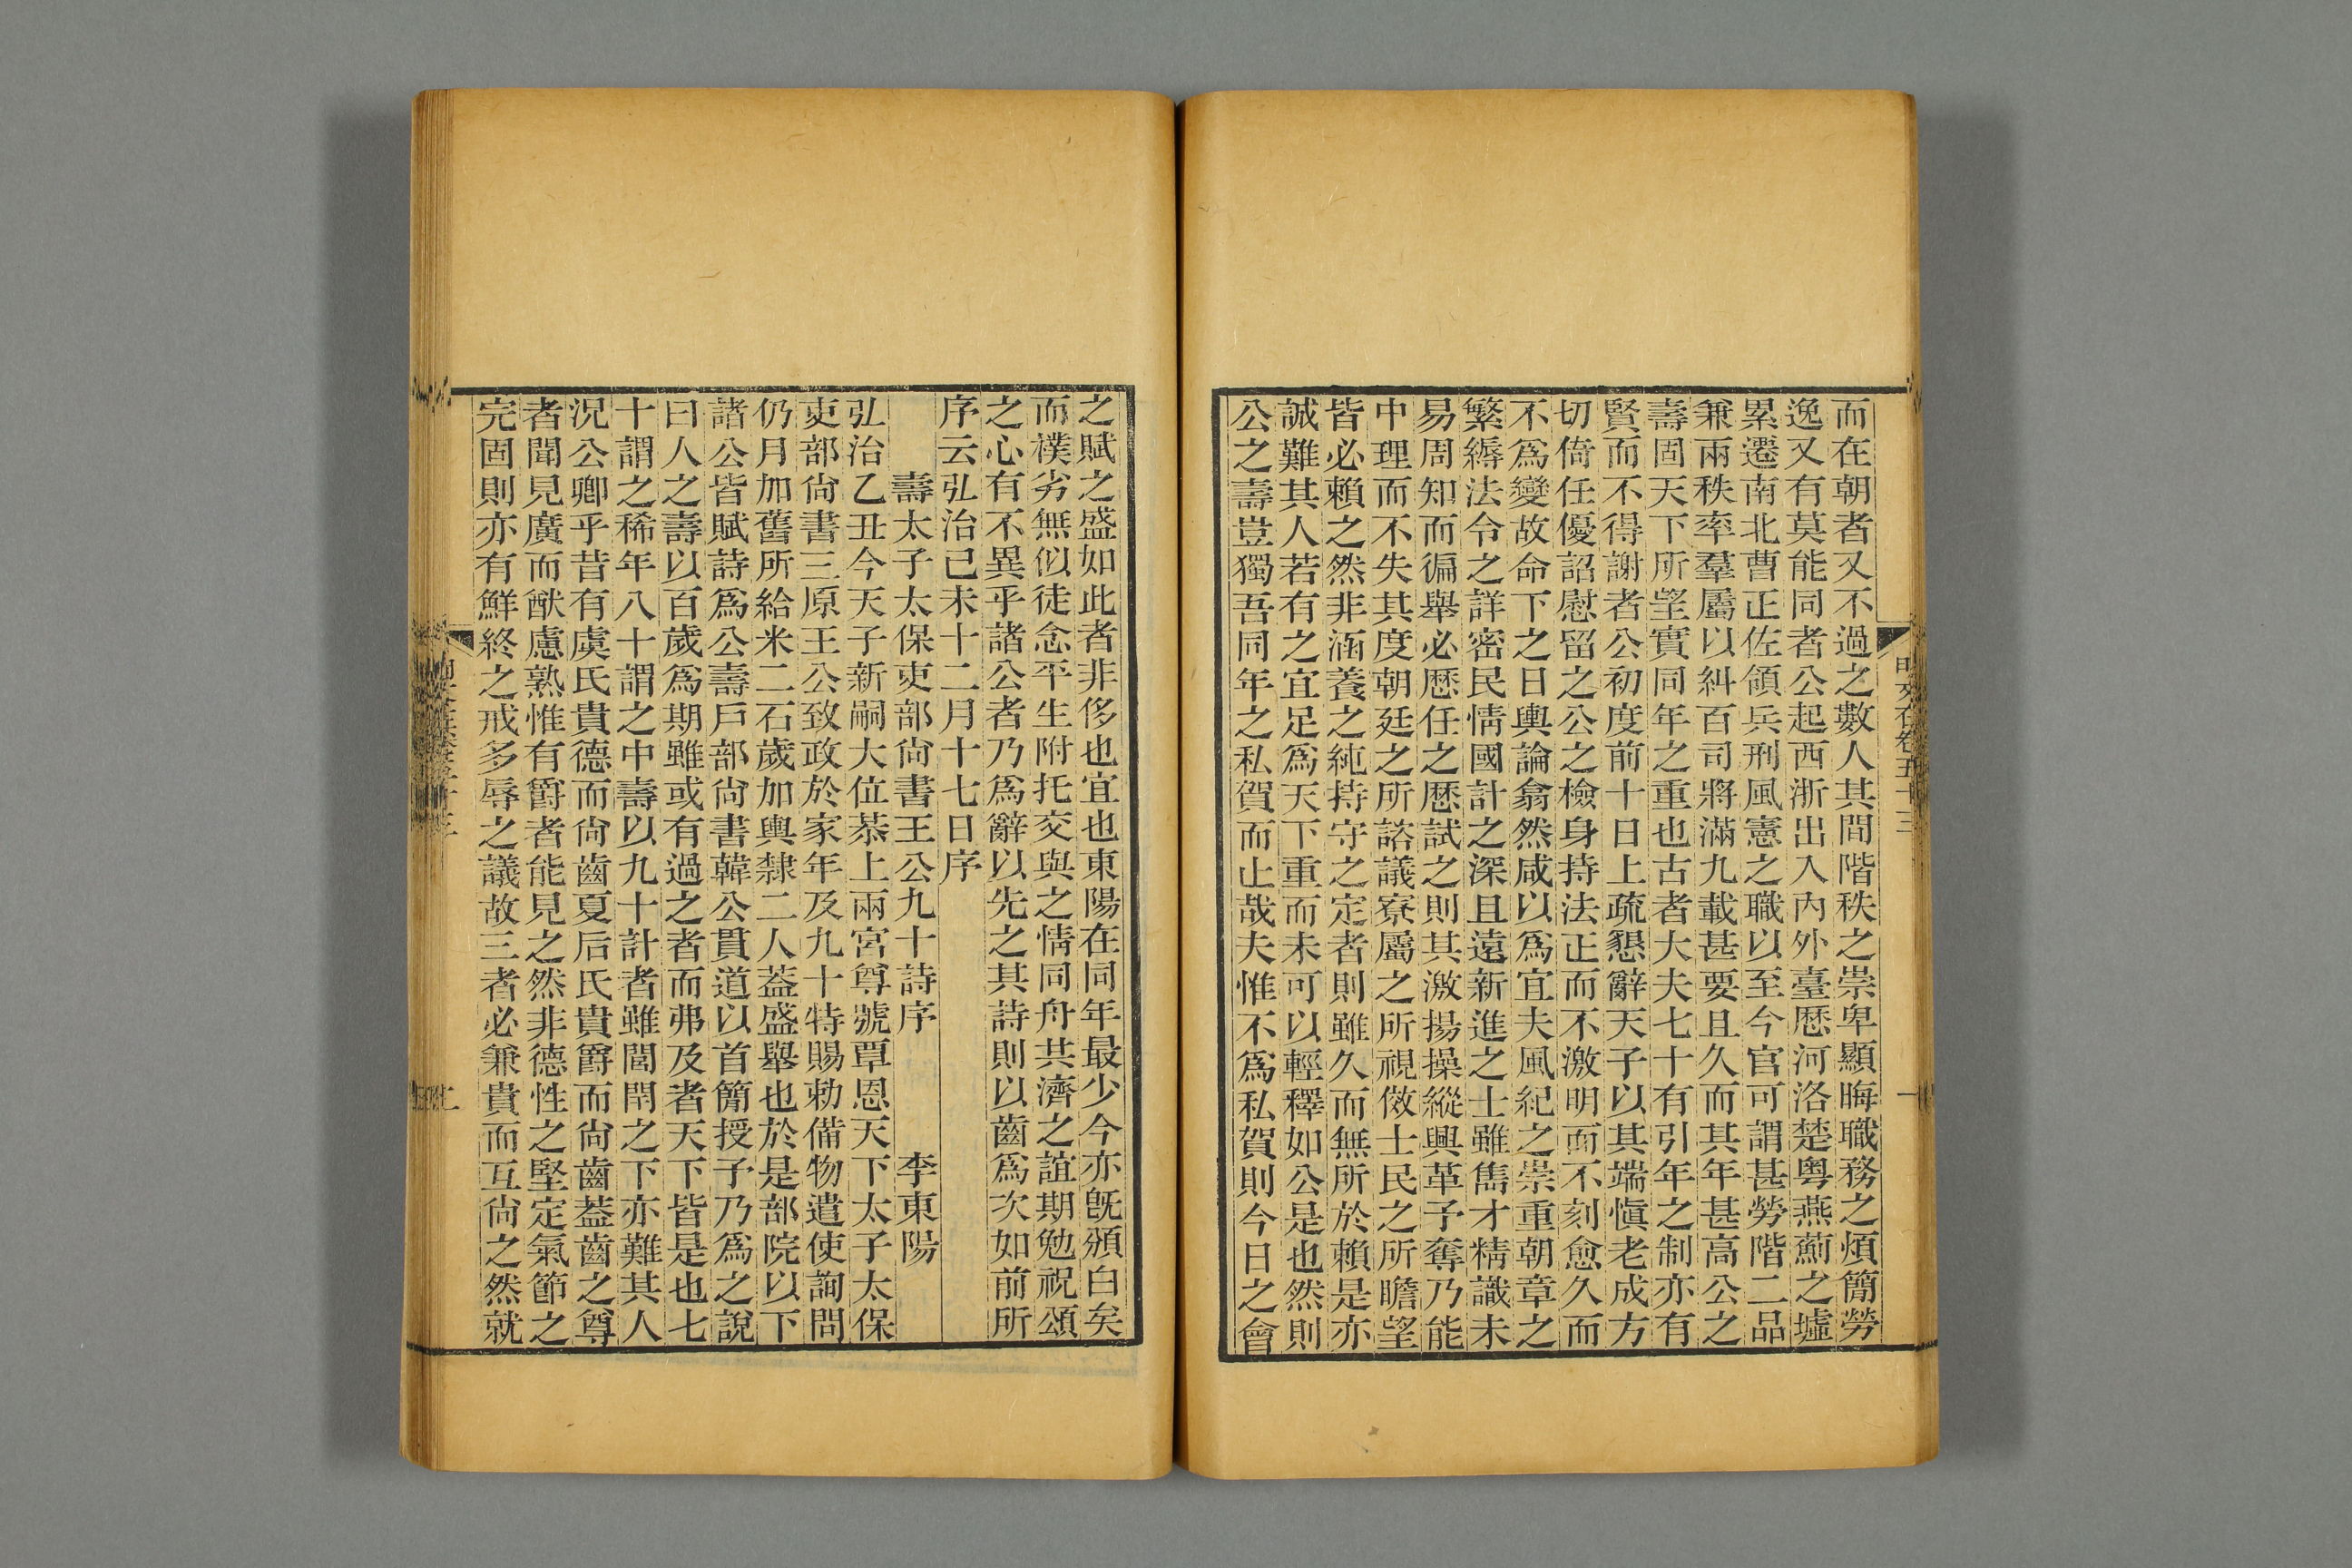 而在朝者又不過之數人其間階秩之崇卑顯晦職務之煩簡勞
逸又有莫能同者公起西浙出入內外臺歷河洛楚粤燕薊之墟
累遷南北曹正佐領兵刑風憲之職以至今官可謂甚勞階二品
兼兩秩率羣屬以糾百司將滿九載甚要且久而其年甚高公之
壽固天下所望實同年之重也古者大夫七十有引年之制亦有
賢而不得謝者公初度前十日上疏懇辭天子以其端愼老成方
切倚任優詔慰留之公之檢身持法正而不激明而不刻愈久而
不爲變故命下之日輿論翕然咸以爲宜夫風紀之崇重朝章之
繁縟法令之詳密民情國計之深且遠新進之士雖雋才精識未
易周知而徧舉必歷任之歷試之則其激揚操縱興革予奪乃能
中理而不失其度朝廷之所諮議寮屬之所視傚士民之所瞻望
皆必賴之然非涵養之純持守之定者則雖久而無所於賴是亦
誠難其人若有之宜足爲天下重而未可以輕釋如公是也然則
公之壽豈獨吾同年之私賀而止哉夫惟不爲私賀則今日之會
之賦之盛如此者非侈也宜也東陽在同年最少今亦旣頒白矣
而樸劣無似徒念平生附托交與之情同舟共濟之誼期勉祝頌
之心有不異乎諸公者乃爲辭以先之其詩則以齒爲次如前所
序云弘治己未十二月十七日序
壽太子太保吏部尙書王公九十詩序 李東陽
弘治乙丑今天子新嗣大位恭上兩宮尊號覃恩天下太子太保
吏部尙書三原王公致政於家年及九十特賜勅備物遣使詢問
仍月加舊所給米二石歲加輿隸二人葢盛舉也於是部院以下
諸公皆賦詩爲公壽戶部尙書韓公貫道以首簡授予乃爲之說
曰人之壽以百歲爲期雖或有過之者而弗及者天下皆是也七
十謂之稀年八十謂之中壽以九十計者雖閭閈之下亦難其人
況公卿乎昔有虞氏貴德而尙齒夏后氏貴爵而尙齒葢齒之尊
者聞見廣而猷慮熟惟有爵者能見之然非德性之堅定氣節之
完固則亦有鮮終之戒多辱之議故三者必兼貴而互尙之然就